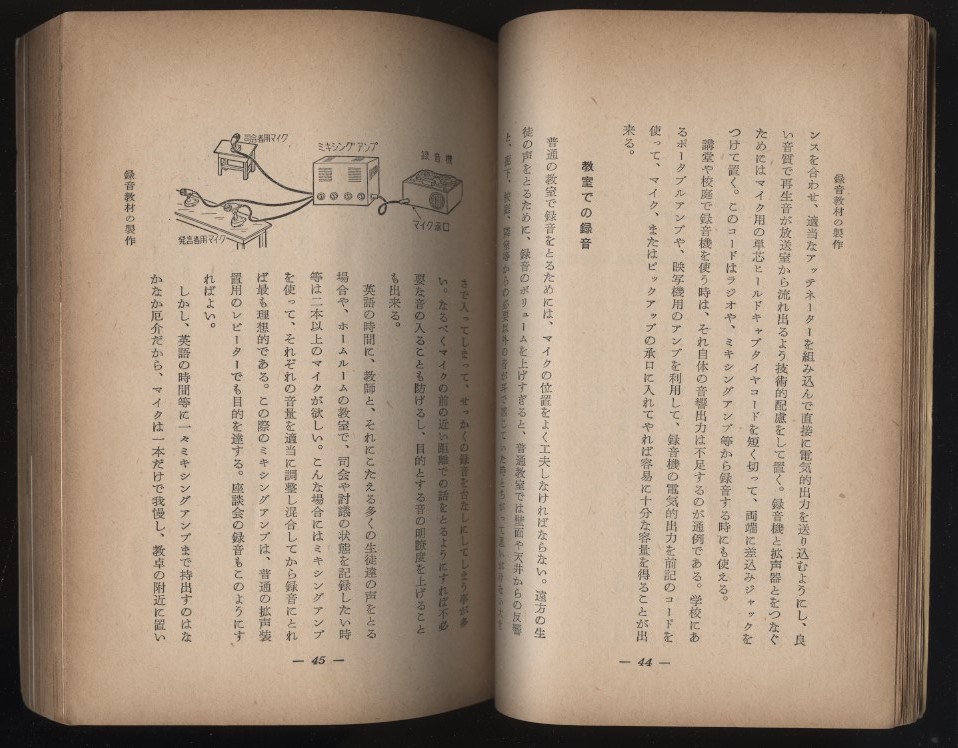 録音教材の製作
ンスを合わせ、適当なアッテネーターを組み込んで直接に電気的出力を送り込むようにし、良
い音質で再生音が放送室から流れ出るよう技術的配慮をして置く。録音機と拡声器とをつなぐ
ためにはマイク用の単芯ヒールドキャブタイヤコードを短く切って、両端に差込みジャックを
つけて置く。このコードはラジオや、ミキシングアンプ等から録音する時にも使える。
講堂や校庭で録音機を使う時は、それ自体の音響出力は不足するのが通例である。学校にあ
るポータブルアンプや、映写機用のアンプを利用して、録音機の電気的出力を前記のコードを
使って、マイク、またはピックアップの承口に入れてやれば容易に十分な容量を得ることが出
来る。
教室での録音
普通の教室で録音をとるためには、マイクの位置をよく工夫しなければならない。遠方の生
徒の声をとるために、録音のボリュームを上げすぎると、普通教室では壁面や天井からの反響
と、廊下、校庭、隣室等からの必要以外の音が
— 44 —
録音機
ミキシングアンプ
司会者用マイク
マイク承口
発言者用マイク
さで入ってしまって、せっかくの録音を台なしにしてしまう事が多
い。なるべくマイクの前の近い距離での話をとるようにすれば不必
要な音の入ることも防げるし、目的とする音の明瞭度を上げること
も出来る。
英語の時間に、教師と、それにこたえる多くの生徒達の声をとる
場合や、ホームルームの教室で、司会や討議の状態を記録したい時
等は二本以上のマイクが欲しい。こんな場合にはミキシングアンプ
を使って、それぞれの音量を適当に調整し混合してから録音にとれ
ば最も理想的である。この際のミキシングアンプは、普通の拡声装
置用のレピーターでも目的を達する。座談会の録音もこのようにす
ればよい。
しかし、英語の時間等に一々ミキシングアンプまで持出すのはな
かなか厄介だから、マイクは一本だけで我慢し、教卓の附近に置い
録音教材の製作
— 45 —